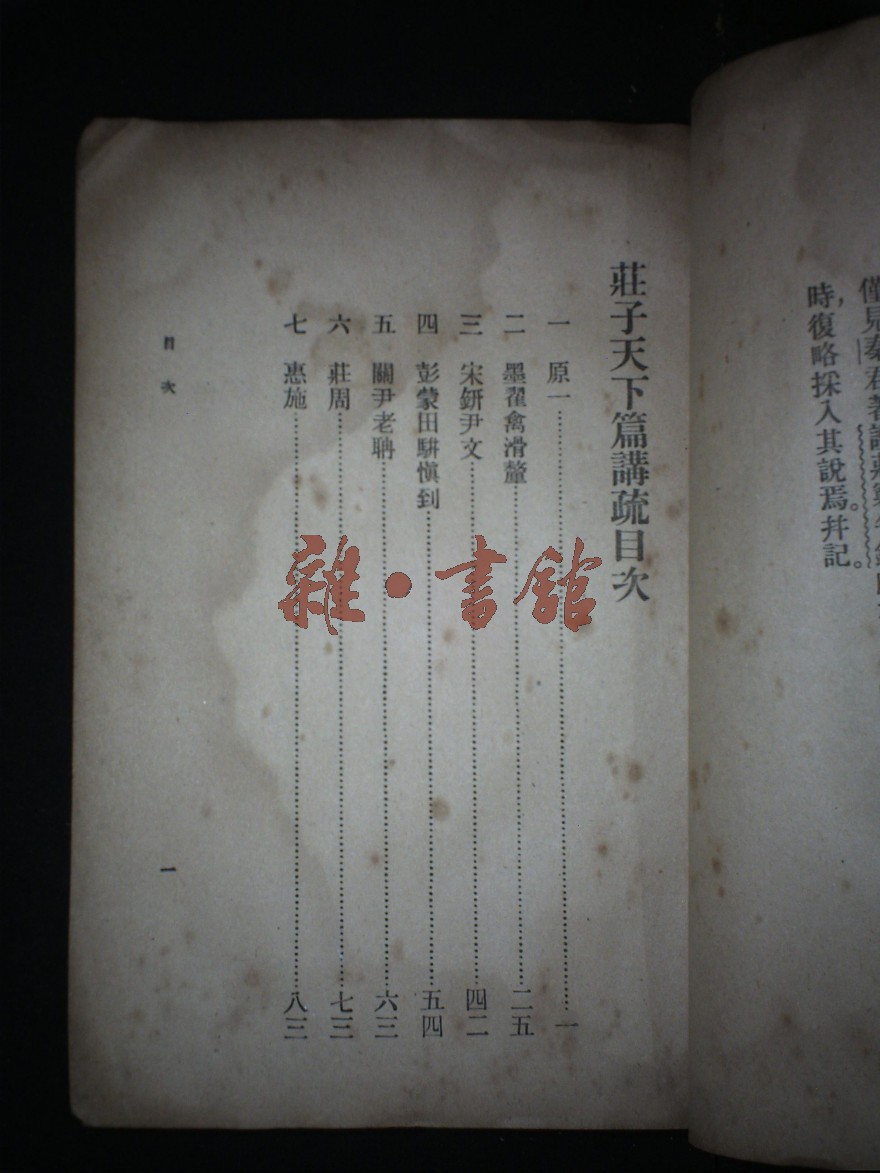 僅見
時，復略採入其說焉。幷記。
莊子天下篇講疏目次
一　原一……一
二　墨翟禽滑釐……二五
三　宋鈃尹文……四二
四　彭蒙田駢愼到……五四
五　關尹老聃……六三
六　莊周……七三
七　惠施……八三
目次
一
雜·書館